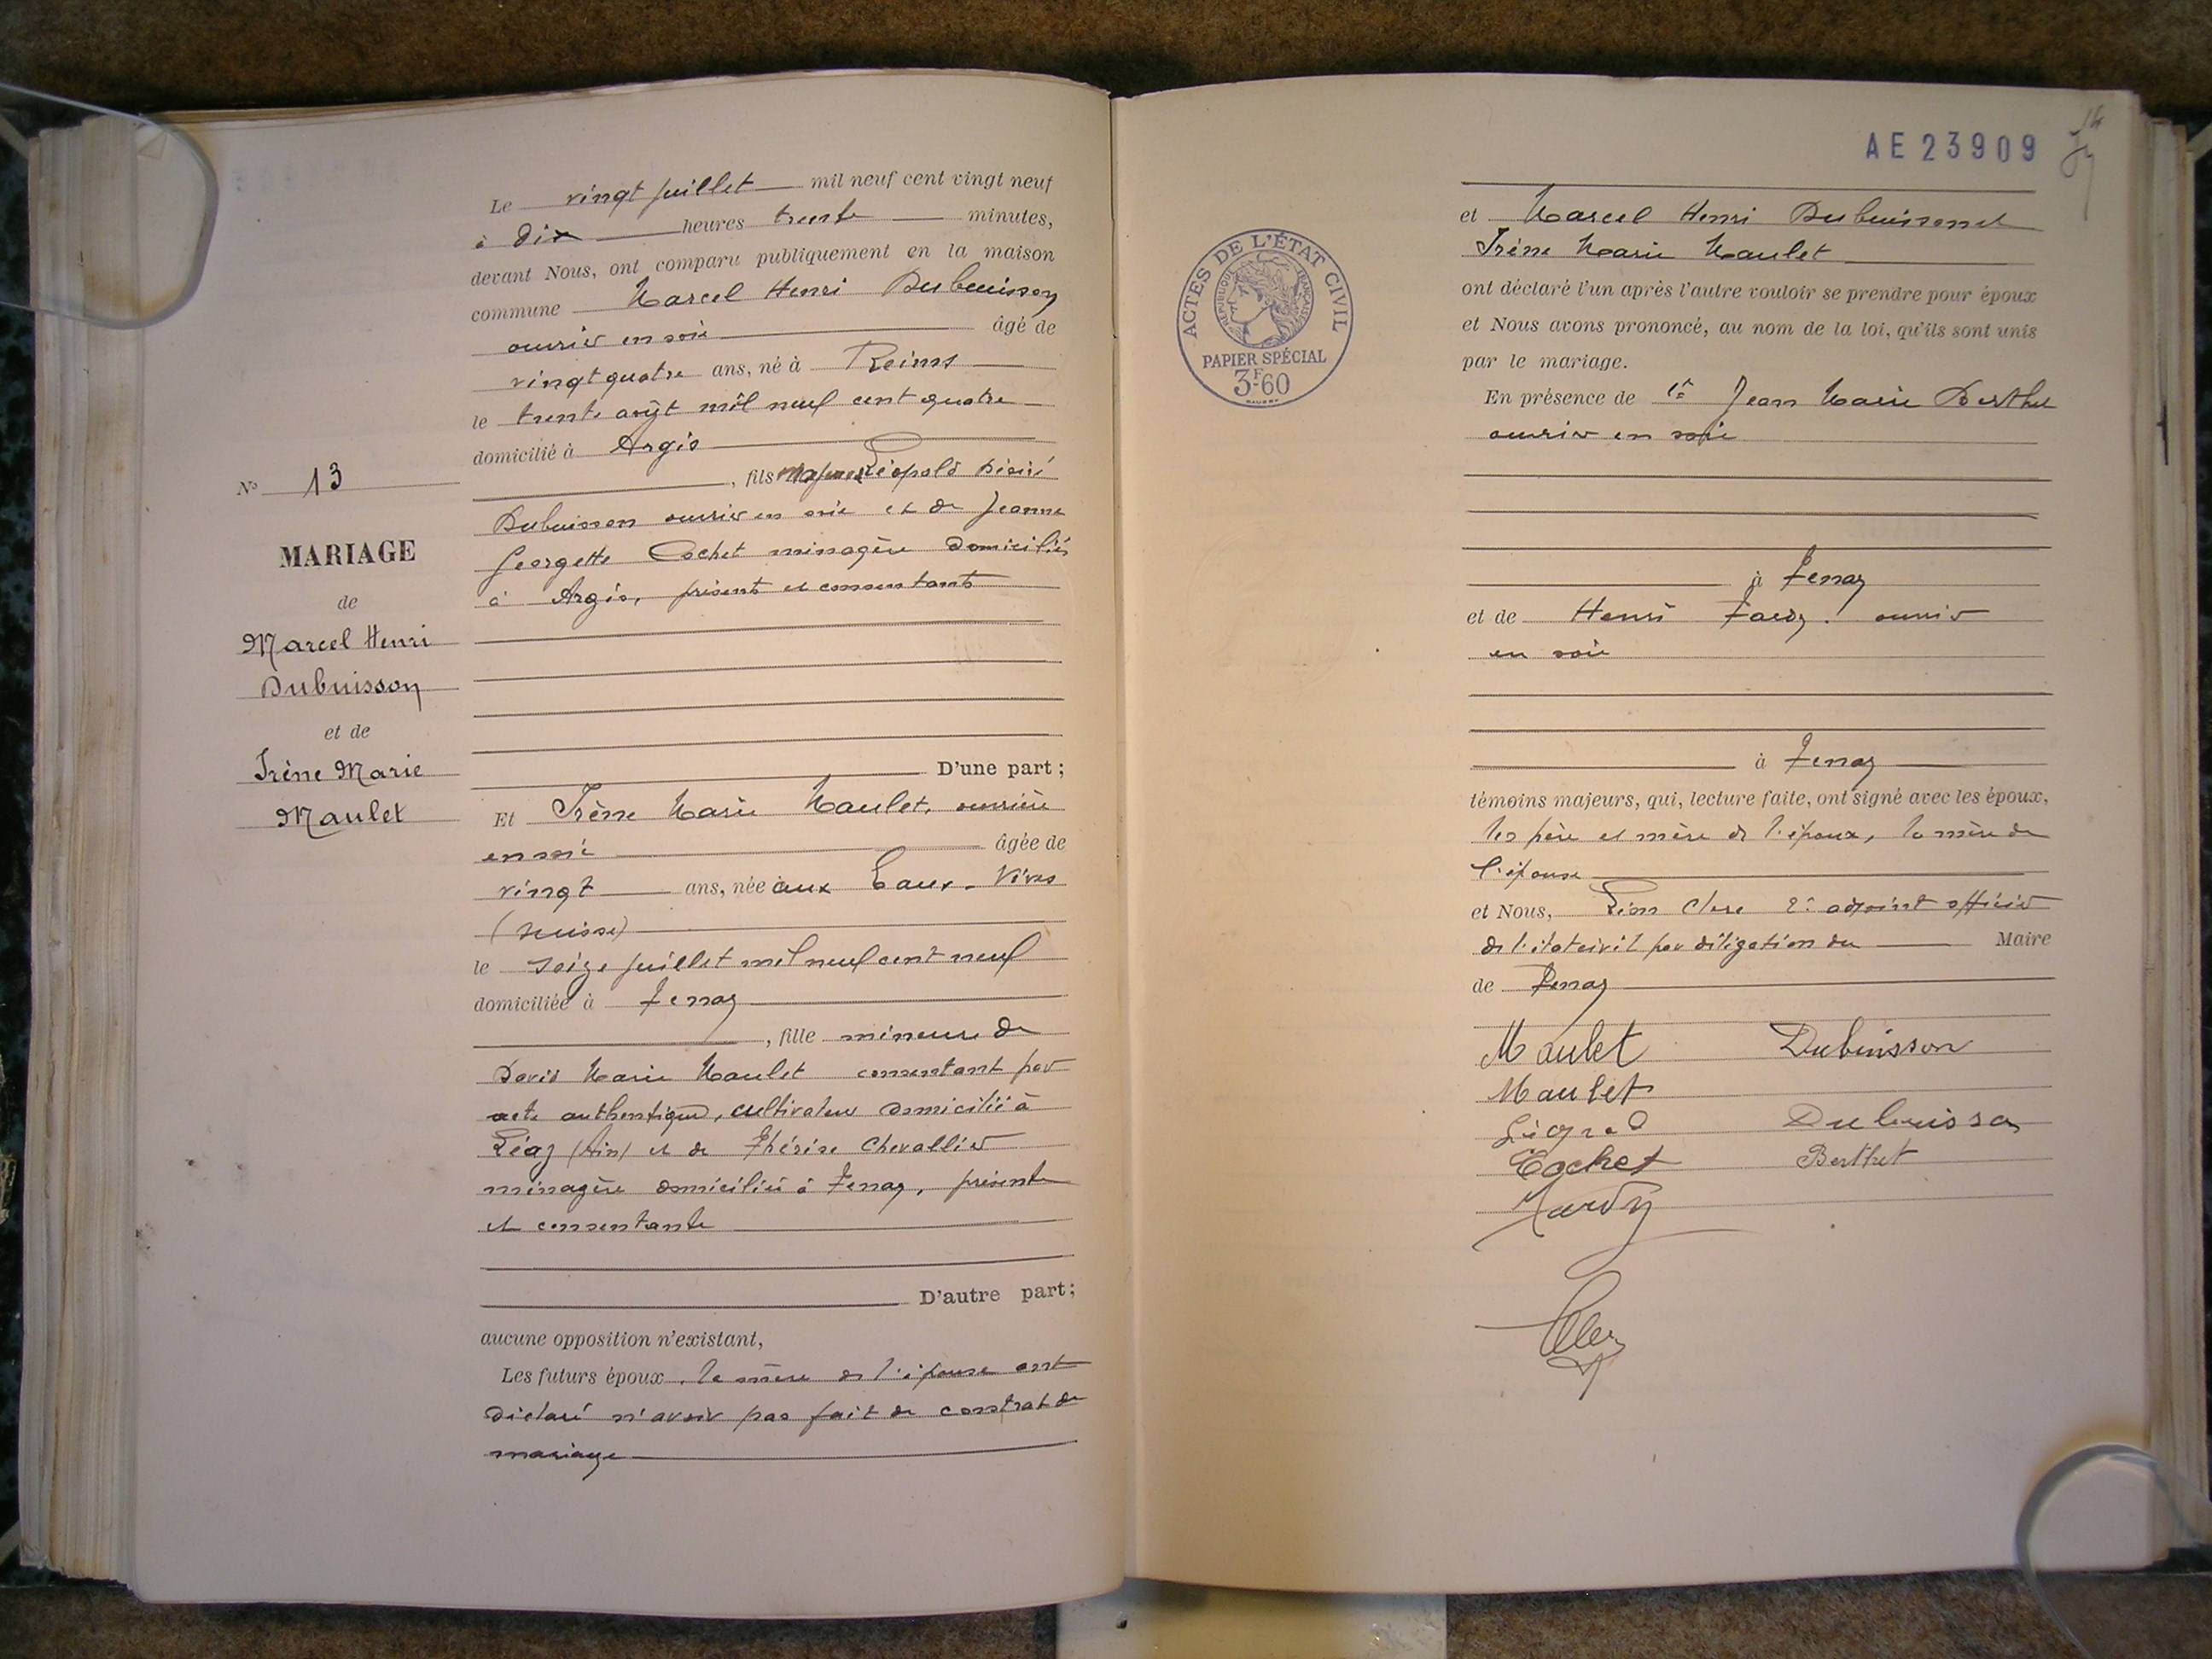 N° 13
MARIAGE
de
Marcel Henri
Dubuisson
et de
Irène Marie
Maulet
Le vingt juillet mil neuf cent vingt neuf
à dix heures trente minutes,
devant Nous, ont comparu publiquement en la maison
commune Marcel Henri Dubuisson
ouvrier en soie âgé de
vingt quatre ans, né à Reims
le trente août mil neuf cent quatre
domicilié à Argis
, fils majeur Léopold Désiré
Dubuisson ouvrier en soie et de Jeanne
Georgette Cochet ménagère domiciliés
à Argis, présents et consentants
D'une part;
Et Irène Marie Maulet, ouvrière
en soie âgée de
vingt ans, née aux Eaux-Vives
(Suisse)
le seize juillet mil neuf cent neuf
domiciliée à Tenay
, fille mineure de
David Marie Maulet consentant par
acte authentique, cultivateur domicilié à
Léaz (Ain) et de Thérèse Chevallier
ménagère domiciliée à Tenay, présente
et consentante
D'autre part;
aucune opposition n'existant,
Les futurs époux, la mère de l'épouse ont
déclaré n'avoir pas fait de contrat de
mariage
AE 23909
14
ACTES DE L'ÉTAT CIVIL
RÉPUBLIQUE FRANÇAISE
PAPIER SPÉCIAL
3F.60
et Marcel Henri Dubuisson et
Irène Marie Maulet
ont déclaré l'un après l'autre vouloir se prendre pour époux
et Nous avons prononcé, au nom de la loi, qu'ils sont unis
par le mariage.
En présence de Jean Marie Berthet
ouvrier en soie
à Tenay
et de Henri Tardy, ouvrier
en soie
à Tenay
témoins majeurs, qui, lecture faite, ont signé avec les époux,
les père et mère de l'époux, la mère de
l'épouse
et Nous, Léon Clerc 2e adjoint officier
de l'état civil par délégation du Maire
de Tenay
Maulet Dubuisson
Maulet
Dubuisson
Cochet Berthet
Tardy